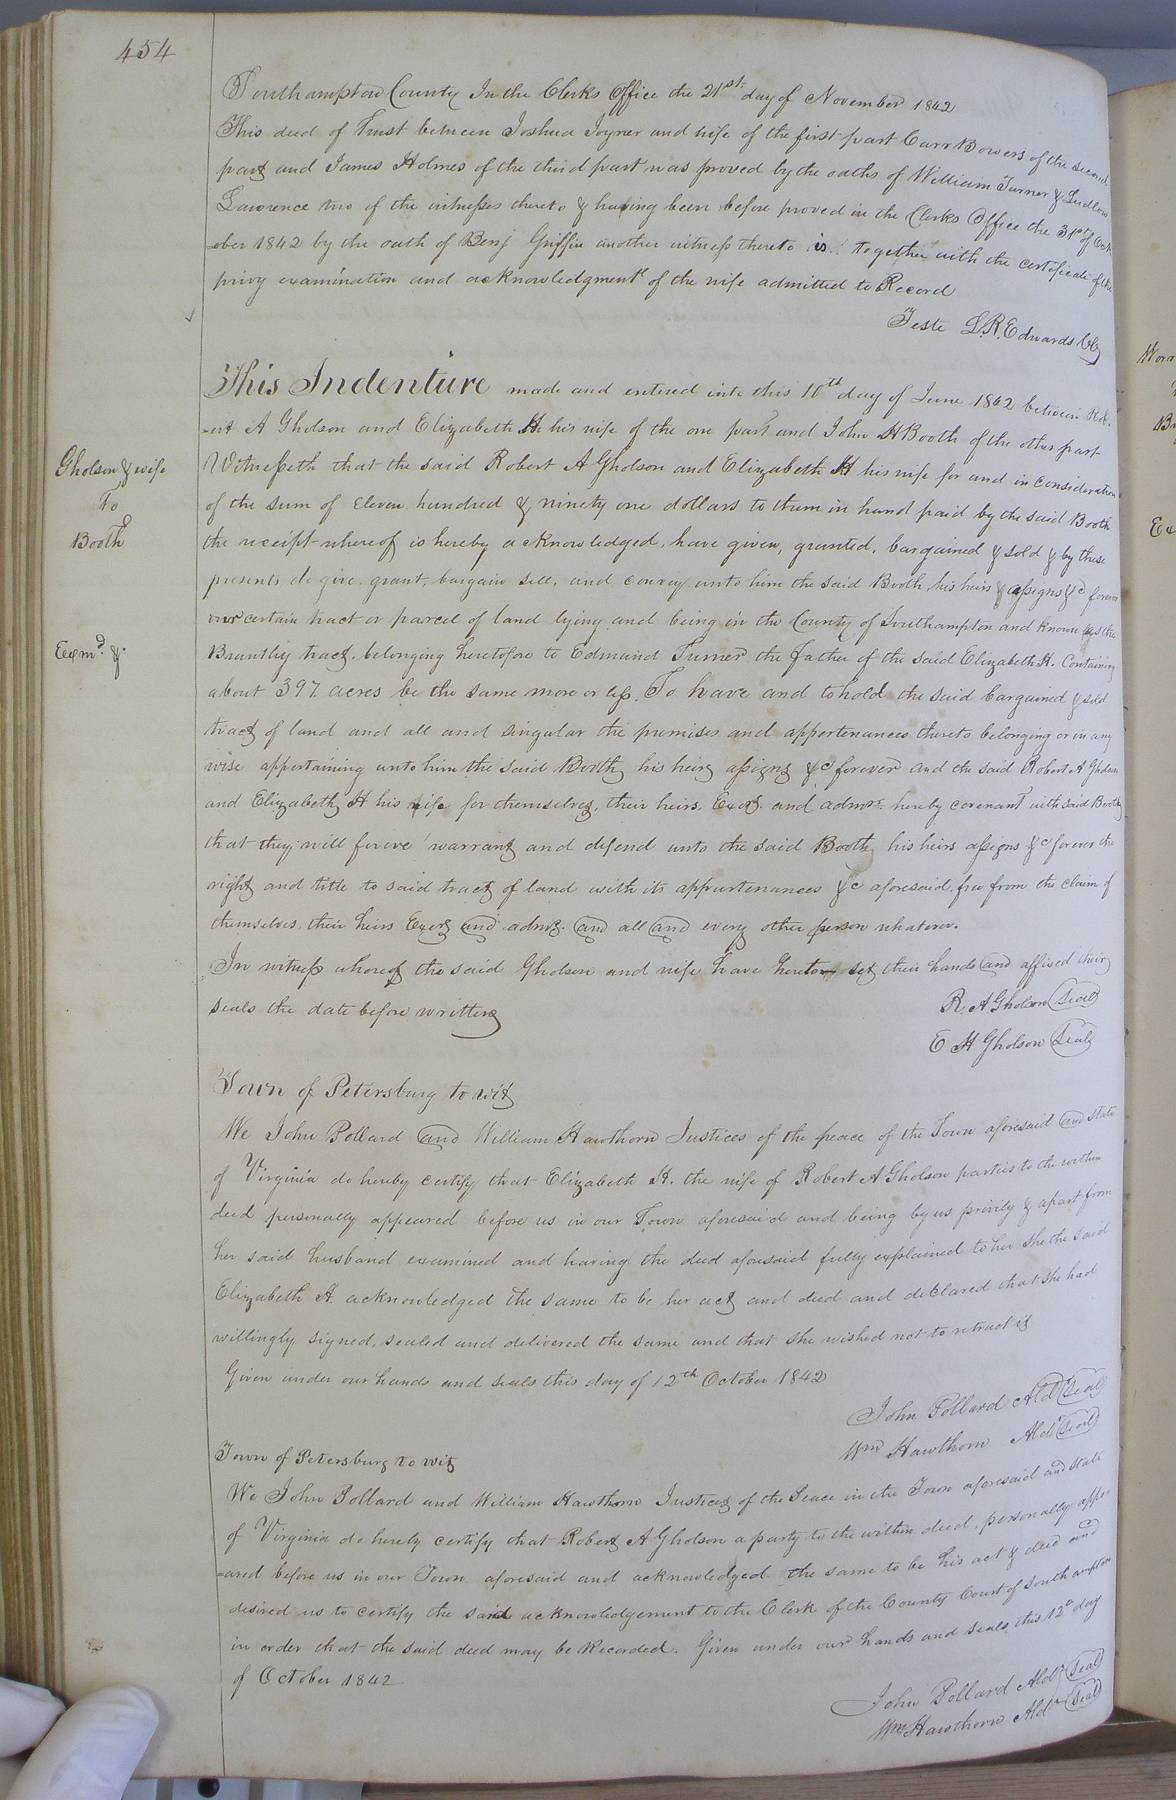 454
Southampton County In the Clerks Office the 21st day of November 1842
This deed of Trust between Joshua Joyner and wife of the first part Carr Bowers of the second
part and James Holmes of the third part was proved by the oaths of William Turner & Ludlow
Lawrence two of the witnesses thereto & having been before proved in the Clerks Office the 31st of Oct
-ober 1842 by the oath of Benj Griffin another witness thereto is together with the certificate of the
privy examination and acknowledgment of the wife admitted to Record
Teste L. R. Edwards Clk
This Indenture made and entered into this 10th day of June 1842 between Rob-
-ert A Gholson and Elizabeth H his wife of the one part and John H Booth of the other part
Gholson & wife
To
Booth
Witnesseth that the said Robert A Gholson and Elizabeth H his wife for and in consideration
of the sum of Eleven hundred & ninety one dollars to them in hand paid by the said Booth
the receipt whereof is hereby acknowledged, have given, granted, bargained & sold & by these
presents do give, grant, bargain sell, and convey unto him the said Booth, his heirs & assigns &c forever
our certain tract or parcel of land lying and being in the County of Southampton and known as the
Examd. &.
Brantley tract, belonging heretofore to Edmund Turner the father of the said Elizabeth H. Containing
about 397 acres be the same more or less. To have and to hold the said bargained & sold
tract of land and all and singular the premises and appertenances thereto belonging or in any
wise appertaining unto him the said Booth, his heirs assigns &c forever and the said Robert A Gholson
and Elizabeth H his wife for themselves, their heirs, Exors. and admrs. hereby covenant with said Booth
that they will forever warrant and defend unto the said Booth, his heirs assigns &c forever the
right and title to said tract of land with its appurtenances &c aforesaid, free from the claim of
themselves, their heirs Exors and admrs. and all and every other person whatever.
In witness whereof the said Gholson and wife have hereto set their hands and affixed their
seals the date before written
R. A Gholson (Seal)
E H Gholson (Seal)
Town of Petersburg to wit
We John Pollard and William Hawthorn Justices of the peace of the Town aforesaid and State
of Virginia do hereby certify that Elizabeth H. the wife of Robert A Gholson parties to the within
deed personally appeared before us in our Town aforesaid and being by us privily & apart from
her said husband examined and having the deed aforesaid fully explained to her She the said
Elizabeth H. acknowledged the same to be her act and deed and declared that she had
willingly signed, sealed and delivered the same and that she wished not to retract it
Given under our hands and seals this day of 12th October 1842
John Pollard Aldr (Seal)
Wm Hawthorn Aldr (Seal)
Town of Petersburg to wit
We John Pollard and William Hawthorn Justices of the Peace in the Town aforesaid and State
of Virginia do hereby certify that Robert A Gholson a party to the within deed, personally appe-
-ared before us in our Town aforesaid and acknowledged the same to be his act & deed and
desired us to certify the said acknowledgement to the Clerk of the County Court of Southampton
in order that the said deed may be Recorded. Given under our hands and seals this 12th day
of October 1842
John Pollard Aldr (Seal)
Wm Hawthorn Aldr (Seal)